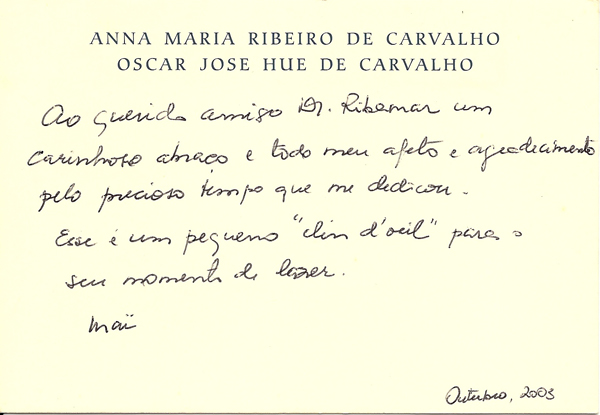 ANNA MARIA RIBEIRO DE CARVALHO
OSCAR JOSE HUE DE CARVALHO
Ao querido amigo Dr. Ribamar um
carinhoso abraço e todo meu afeto e agradecimento
pelo precioso tempo que me dedicou.
Esse é um pequeno "clin d'oeil" para o
seu momento de lazer.
Maï
Outubro, 2003